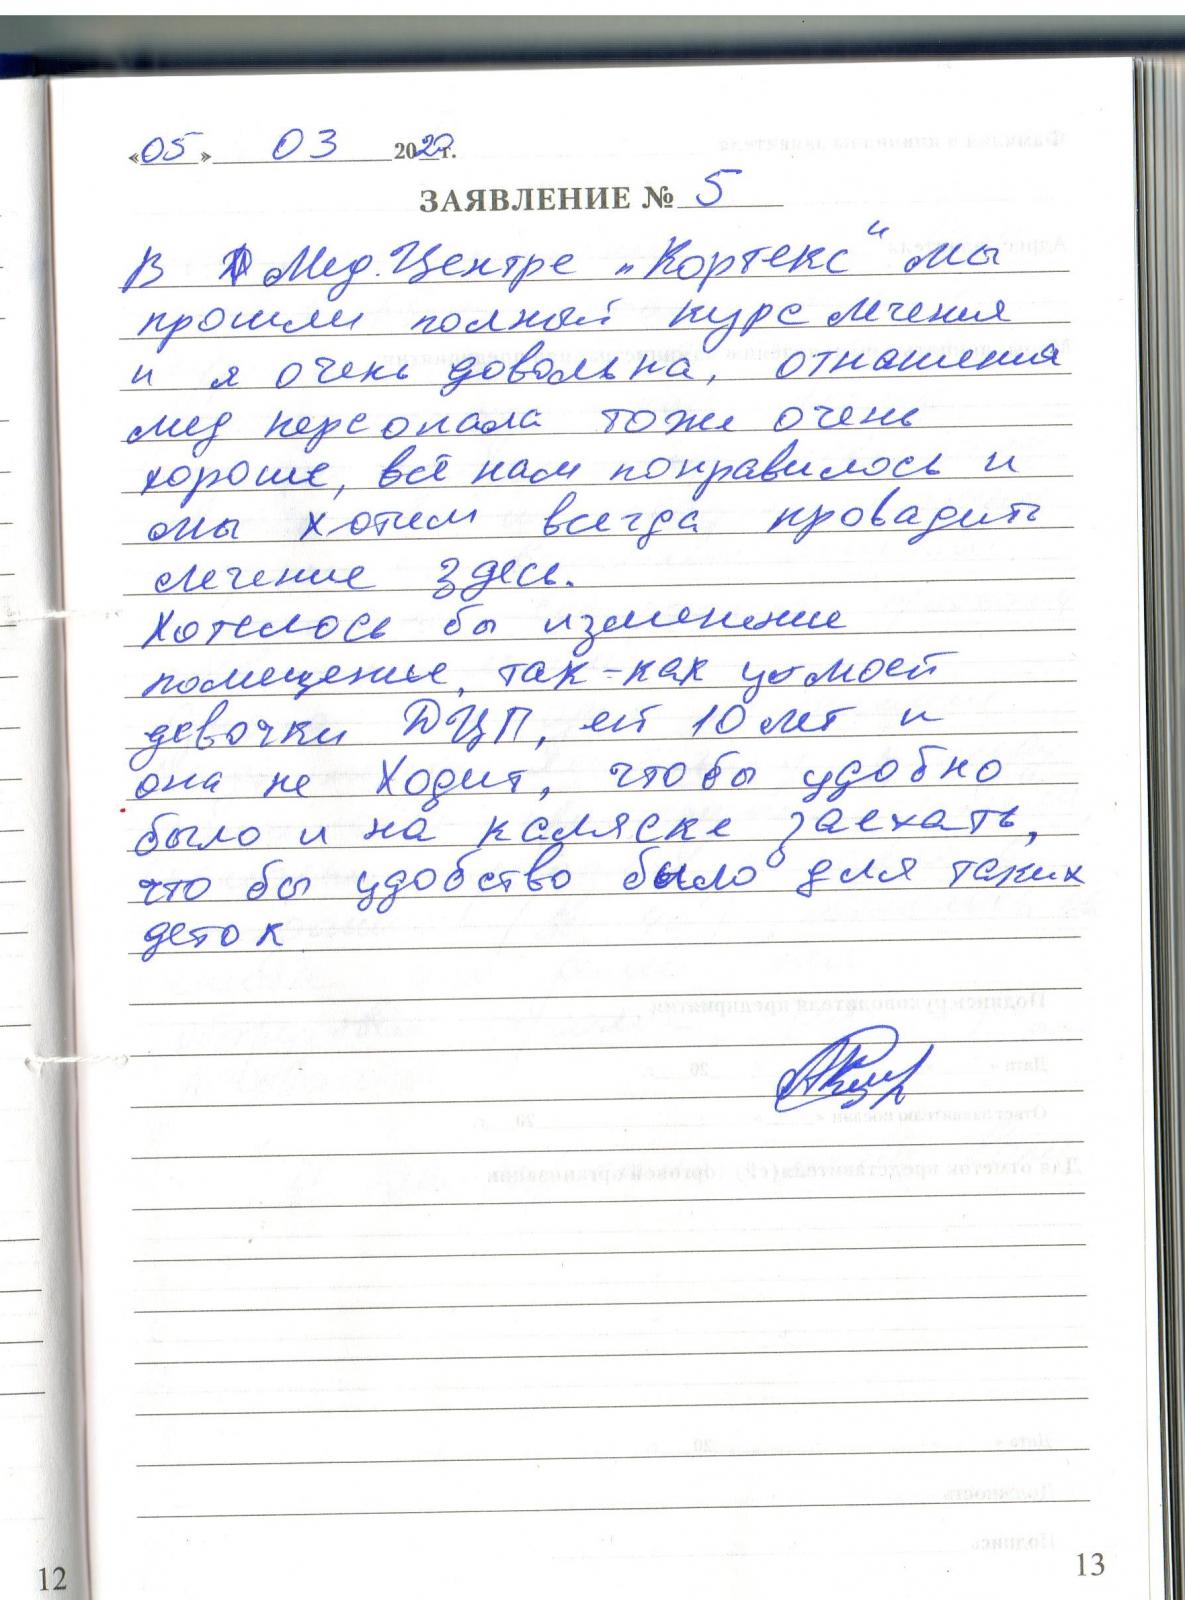 «05» 03 2022г.
ЗАЯВЛЕНИЕ № 5
В Мед. Центре „Кортекс“ мы
прошли полный курс лечения
и я очень довольна, отнашения
мед персонала тоже очень
хороше, всё нам понравилось и
мы хотим всегда провадить
лечение здесь.
Хотелось бы изменение
помещенье, так-как у моей
девочки ДЦП, ей 10 лет и
она не Ходит, чтобы удобно
было и на каляске заехать,
что бы удобство было для таких
деток
12
13